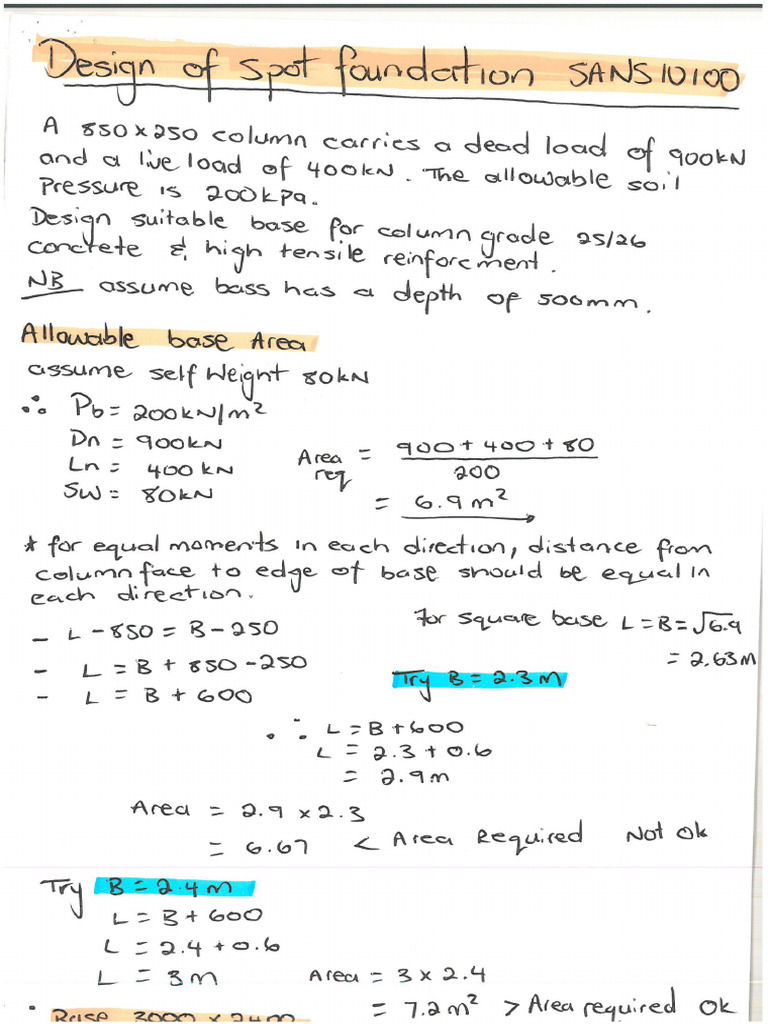 Design of spot foundation SANS10100
A 850x250 column carries a dead load of 900kN
and a live load of 400kN. The allowable soil
Pressure is 200kpa.
Design suitable base for column grade 25/26
concrete & high tensile reinforcment.
NB assume bass has a depth of 500mm.
Allowable base Area
assume self weight 80kN
∴ Pb = 200kN/m²
Dn = 900kN
Ln = 400kN
SW = 80kN
Area req = (900 + 400 + 80) / 200
= 6.9m²
* for equal moments in each direction, distance from
column face to edge of base should be equal in
each direction.
- L - 850 = B - 250
- L = B + 850 - 250
- L = B + 600
for square base L = B = √6.9
= 2.63m
Try B = 2.3m
∴ L = B + 600
L = 2.3 + 0.6
= 2.9m
Area = 2.9 x 2.3
= 6.67 < Area Required Not Ok
Try B = 2.4m
L = B + 600
L = 2.4 + 0.6
L = 3m
Area = 3 x 2.4
= 7.2m² > Area required Ok
Base 3000 x 2.4m